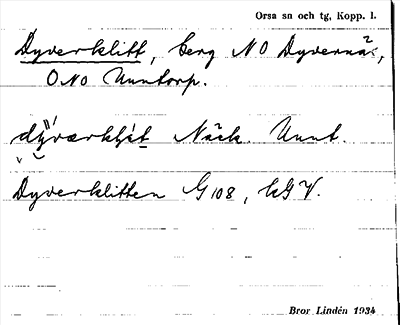 Orsa sn och tg, Kopp. l.
Dyverklitt, berg NO Dyvernäs,
ONO Unntorp.
Näck. Unnt.
Dyverklitten G 108, kGV.
Bror Lindén 1934